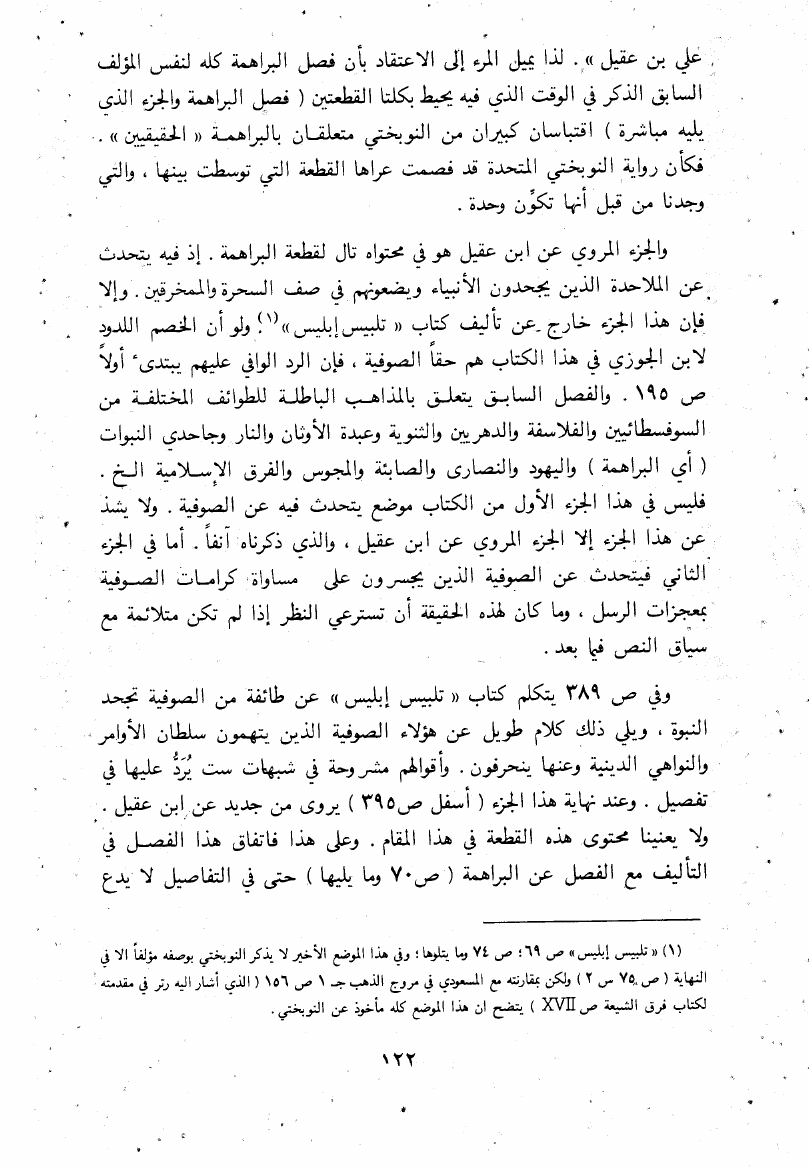 علي بن عقيل » . لذا يميل المرء إلى الاعتقاد بأن فصل البراهمة كله لنفس المؤلف
السابق الذكر في الوقت الذي فيه يحيط بكلتا القطعتين ( فصل البراهمة والجزء الذي
يليه مباشرة ) اقتباسان كبيران من النوبختي متعلقـان بالبراهمـة « الحقيقيين » .
فكأن رواية النوبختي المتحدة قد فصمت عراها القطعة التي توسطت بينها ، والتي
وجدنا من قبل أنها تكوِّن وحدة .
والجزء المروي عن ابن عقيل هو في محتواه تال لقطعة البراهمة . إذ فيه يتحدث
عن الملاحدة الذين يجحدون الأنبياء ويضعونهم في صف السحرة والممخرقين . وإلا
فإن هذا الجزء خارج عن تأليف كتاب « تلبيس إبليس »(١). ولو أن الخصم اللدود
لابن الجوزي في هذا الكتاب هم حقاً الصوفية ، فإن الرد الوافي عليهم يبتدىء أولاً
ص ١٩٥ . والفصل السابـق يتعلـق بالمذاهـب الباطلـة للطوائف المختلفـة من
السوفسطائيين والفلاسفة والدهريين والثنوية وعبدة الأوثان والنار وجاحدي النبوات
( أي البراهمة ) واليهود والنصارى والصابئة والمجوس والفرق الإسـلامية الـخ .
فليس في هذا الجزء الأول من الكتاب موضع يتحدث فيه عن الصوفية . ولا يشذ
عن هذا الجزء إلا الجزء المروي عن ابن عقيل ، والذي ذكرناه آنفاً . أما في الجزء
الثاني فيتحدث عن الصوفية الذين يجسرون على مساواة كرامـات الصـوفية
بمعجزات الرسل ، وما كان لهذه الحقيقة أن تسترعي النظر إذا لم تكن متلائمة مع
سياق النص فيما بعد .
وفي ص ٣٨٩ يتكلم كتاب « تلبيس إبليس » عن طائفة من الصوفية تجحد
النبوة ، ويلي ذلك كلام طويل عن هؤلاء الصوفية الذين يتهمون سلطان الأوامر
والنواهي الدينية وعنها ينحرفون . وأقوالهم مشروحة في شبهات ست يُرَدُّ عليها في
تفصيل . وعند نهاية هذا الجزء ( أسفل ص ٣٩٥ ) يروى من جديد عن ابن عقيل .
ولا يعنينا محتوى هذه القطعة في هذا المقام . وعلى هذا فاتفاق هذا الفصـل في
التأليف مع الفصل عن البراهمة ( ص ٧٠ وما يليها ) حتى في التفاصيل لا يدع
(١) « تلبيس إبليس » ص ٦٩؛ ص ٧٤ وما يتلوها ؛ وفي هذا الموضع الأخير لا يذكر النوبختي بوصفه مؤلفاً الا في
النهاية ( ص ٧٥ س ٢ ) ولكن بمقارنته مع المسعودي في مروج الذهب جـ ١ ص ١٥٦ ( الذي أشار اليه رتر في مقدمته
لكتاب فرق الشيعة ص XVII ) يتضح ان هذا الموضع كله مأخوذ عن النوبختي .
١٢٢